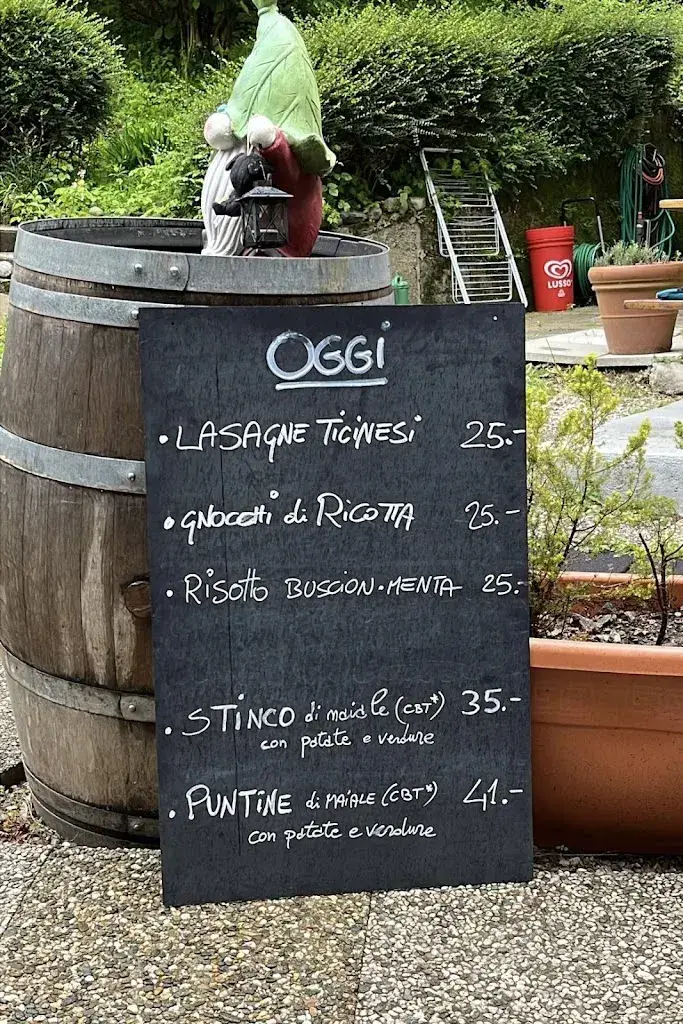 OGGI
• LASAGNE TICINESI 25.-
• GNOCCHI di RICOTTA 25.-
• RISOTTO BUSCION • MENTA 25.-
• STINCO di maiale (CBT*) 35.-
con patate e verdure
• PUNTINE di MAIALE (CBT*) 41.-
con patate e verdure
LUSSO